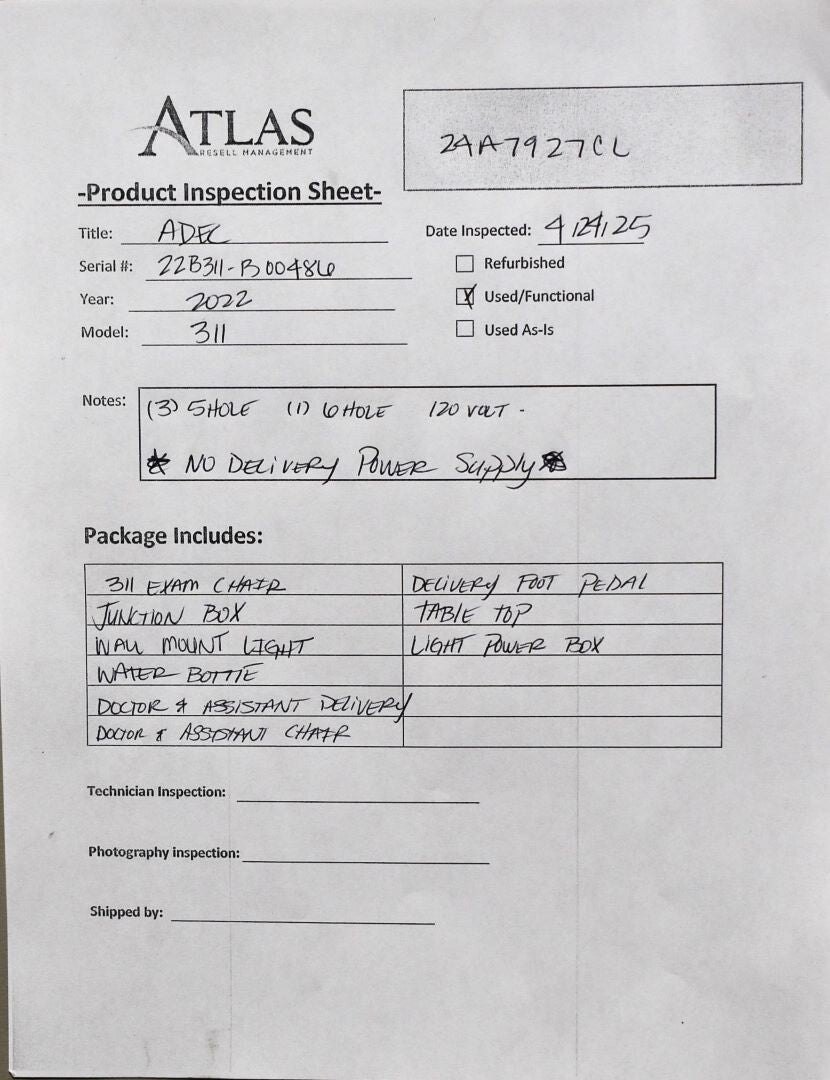 ATLAS
RESELL MANAGEMENT
24A7927CL
-Product Inspection Sheet-
Title: ADEC
Date Inspected: 4/24/25
Serial #: 22B311-B00486
Refurbished
Year: 2022
X Used/Functional
Model: 311
Used As-Is
Notes: (3) 5 HOLE (1) 6 HOLE 120 VOLT -
* NO DELIVERY POWER SUPPLY *
Package Includes:
311 EXAM CHAIR DELIVERY FOOT PEDAL
JUNCTION BOX TABLE TOP
WALL MOUNT LIGHT LIGHT POWER BOX
WATER BOTTLE
DOCTOR & ASSISTANT DELIVERY
DOCTOR & ASSISTANT CHAIR
Technician Inspection:
Photography inspection:
Shipped by: